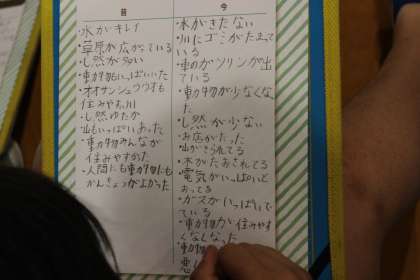 昔
水がキレイ
・草原が広がっている
し然が多い
・動物もいっぱいいた
・オオサンショウウオも
住みやすい川
・し然ゆたか
・山もいっぱいあった
・動物みんなが
住みやすかった
・人間にも動物にも
かんきょうがよかった
今
・水がきたない
・川にゴミがたまって
いる
・車のガソリンが出
ている
・動物が少なくなっ
た
・し然が少ない
・お店がたった
・山がきられてる
・木がたおされてる
・電気がいっぱい
とおってる
・ガスがいっぱいで
ている
・動物が住みやす
くなくなった
・動物
悪